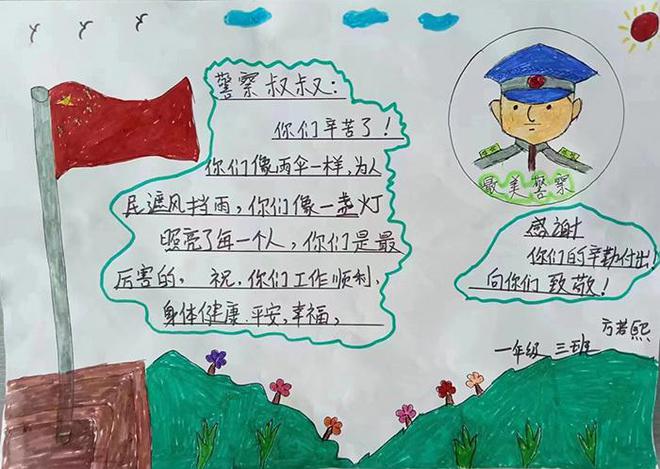 警察叔叔：
你们辛苦了！
你们像雨伞一样，为人
民遮风挡雨，你们像一盏灯
照亮了每一个人，你们是最
厉害的， 祝，你们工作顺利，
身体健康.平安，幸福，
最美警察
感谢
你们的辛勤付出！
向你们致敬！
方若熙
一年级 三班